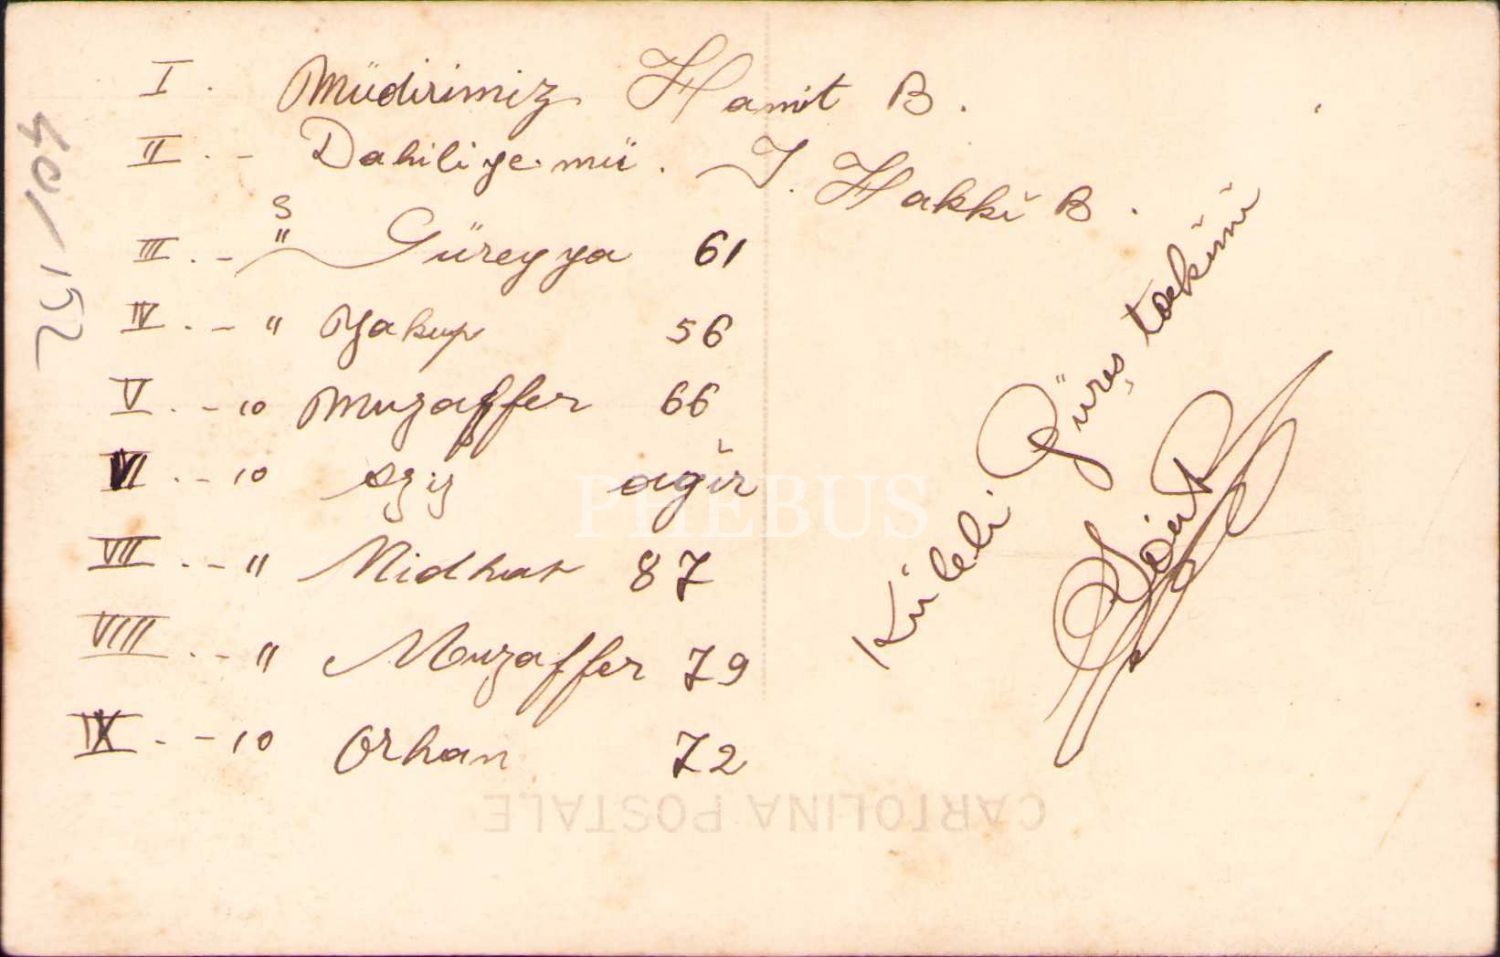 I. Müdirimiz Hamit B.
II. - Dahiliye mü. İ. Hakkı B.
III. - " Güreyya 61
S
IV. - " Yakup 56
V. - 10 Muzaffer 66
VI. - 10 aziz ağır
VII. - " Midhat 87
VIII. - " Muzaffer 79
IX. - 10 Orhan 72
Küleli Güreş takımı
40/152
CARTOLINA POSTALE
PHEBUS